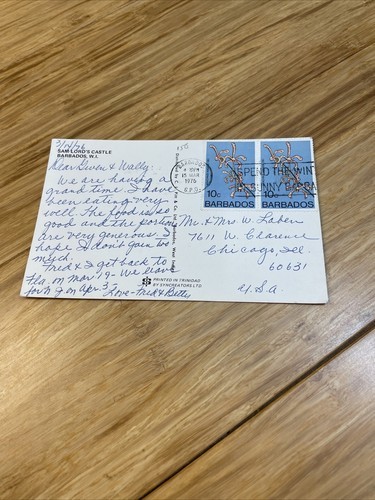 3/14/76
SAM LORD'S CASTLE
BARBADOS, W.I.
Dear Gwen & Wally:
We are having a
grand time. I have
been eating very
well. The food is so
good and the portions
are very generous. I
hope I don't gain too
much.
Fred & I get back to
Fla. on Mar 19. We leave
for N J on Apr 3
Love - Fred & Betty
BARBADOS
15 MAR
1976
G.P.O.
SPEND THE WINT
SUNNY BARBA
10c
BARBADOS
10c
BARBADOS
Mr. & Mrs W. Laben
7611 W. Clarence
Chicago, Ill.
60631
U.S.A.
PRINTED IN TRINIDAD
BY SYNCREATORS LTD.